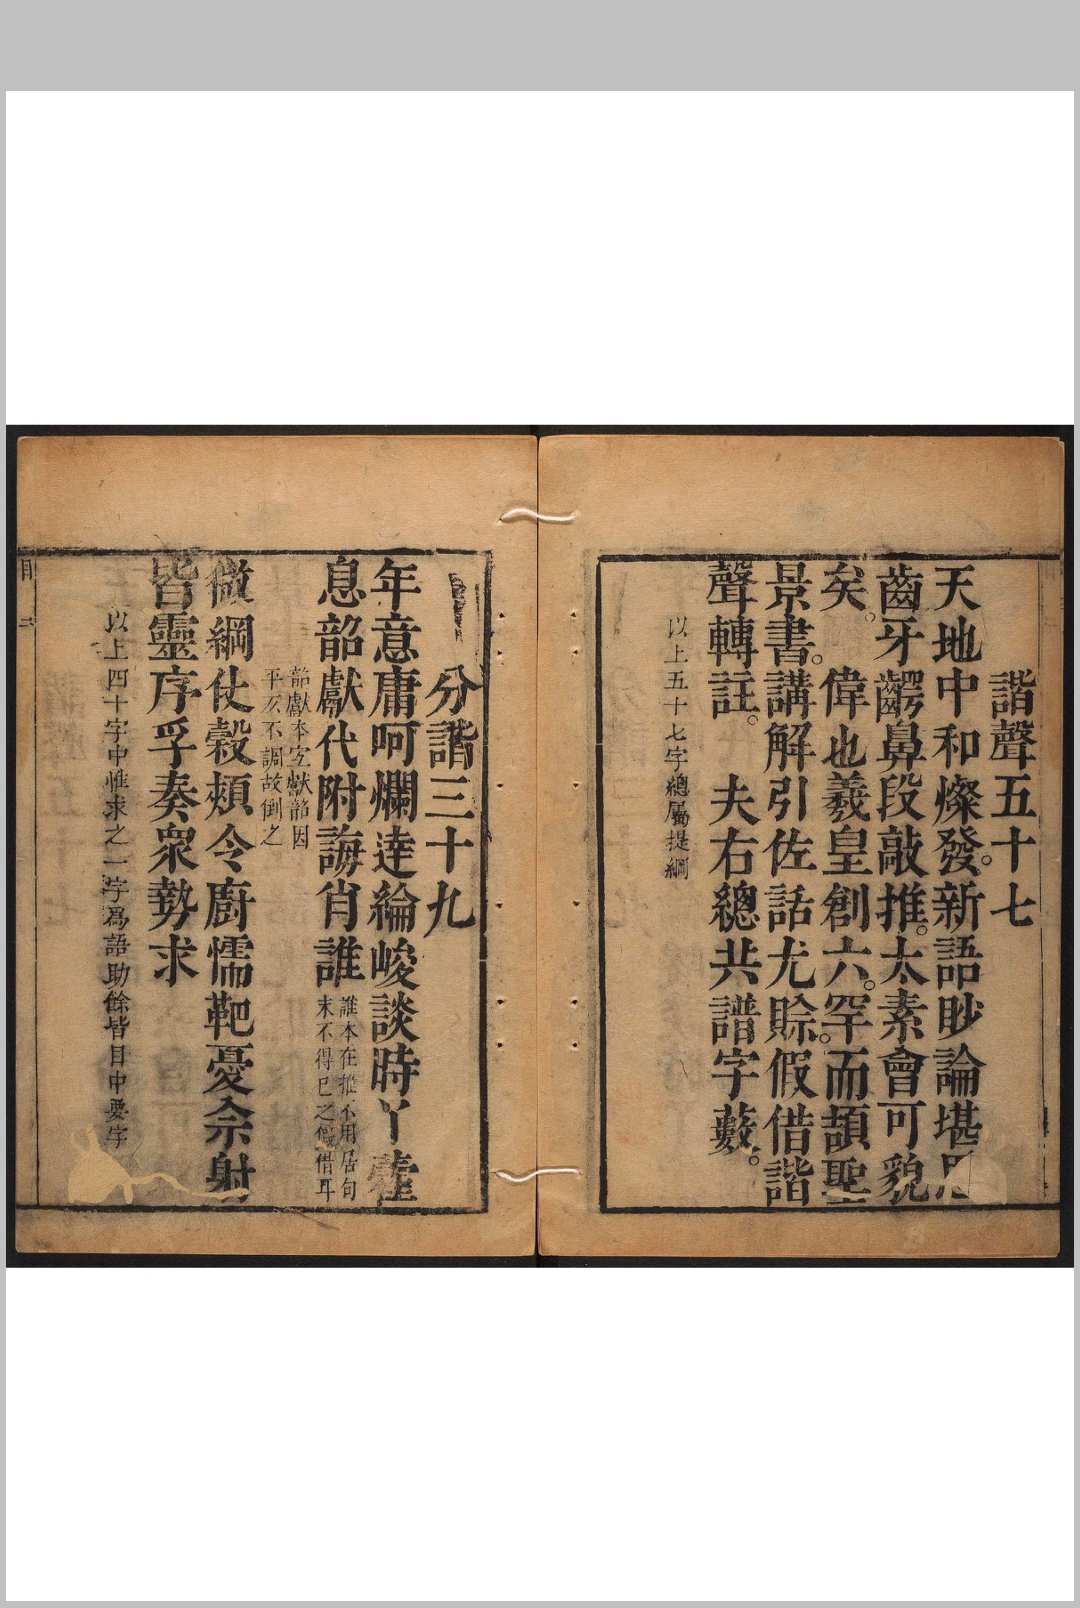 諧聲五十七
天地中和燦發。新語眇論堪
齒牙齶鼻段敲推。太素會可貌
矣。偉也羲皇創六。罕。而頡聖
景書。講解引佐話尤賒假借諧
聲轉註。夫右總共譜字藪。
以上五十七字總屬提綱
分諧三十九
年意庸呵爛達綸峻談時丫
息韶獻代附誨肖誰
誰本在推不用居句
末不得已之假借耳
韶獻本宜獻韶因
平仄不調故倒之
做綱仗穀頰令廚懦靶憂佘射
皆靈序孚奏衆勢求
以上四十字中惟求之一字爲語助餘皆目中要字
目
二